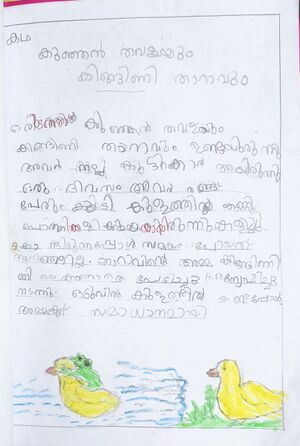 കഥ
കുഞ്ഞൻ തവളയും
കിങ്ങിണി താറാവും
ഒരിടത്ത് കുഞ്ഞൻ തവളയും
കിങ്ങിണി താറാവും ഉണ്ടായിരുന്നു
അവർ നല്ല കൂട്ടുകാർ ആയിരുന്നു
ഒരു ദിവസം അവർ രണ്ടു
പേരും കൂടി കുളത്തിൽ
കളി
സമയം പോയത്
അറിഞ്ഞില്ല. താറാവിന്റെ അമ്മ കിങ്ങിണി
യെ കാണാതെ പേടിച്ചു അന്വേഷിച്ചു
നടന്നു. ഒടുവിൽ കുളത്തിൽ കണ്ടപ്പോൾ
അമ്മക്ക് സമാധാനമായി